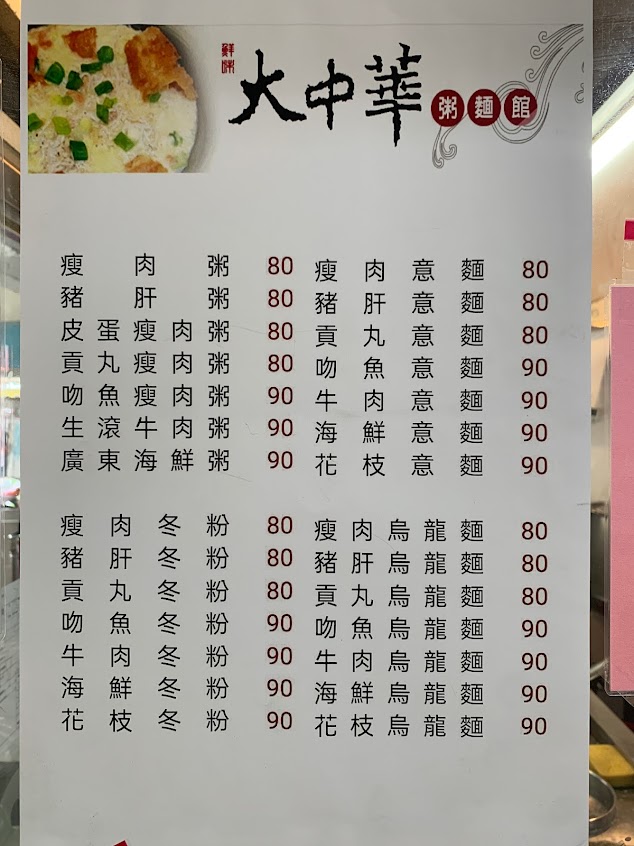 鮮味
大中華粥麵館
瘦肉粥 80
豬肝粥 80
皮蛋瘦肉粥 80
貢丸瘦肉粥 80
吻魚瘦肉粥 90
生滾牛肉粥 90
廣東海鮮粥 90
瘦肉意麵 80
豬肝意麵 80
貢丸意麵 80
吻魚意麵 90
牛肉意麵 90
海鮮意麵 90
花枝意麵 90
瘦肉冬粉 80
豬肝冬粉 80
貢丸冬粉 80
吻魚冬粉 90
牛肉冬粉 90
海鮮冬粉 90
花枝冬粉 90
瘦肉烏龍麵 80
豬肝烏龍麵 80
貢丸烏龍麵 80
吻魚烏龍麵 90
牛肉烏龍麵 90
海鮮烏龍麵 90
花枝烏龍麵 90